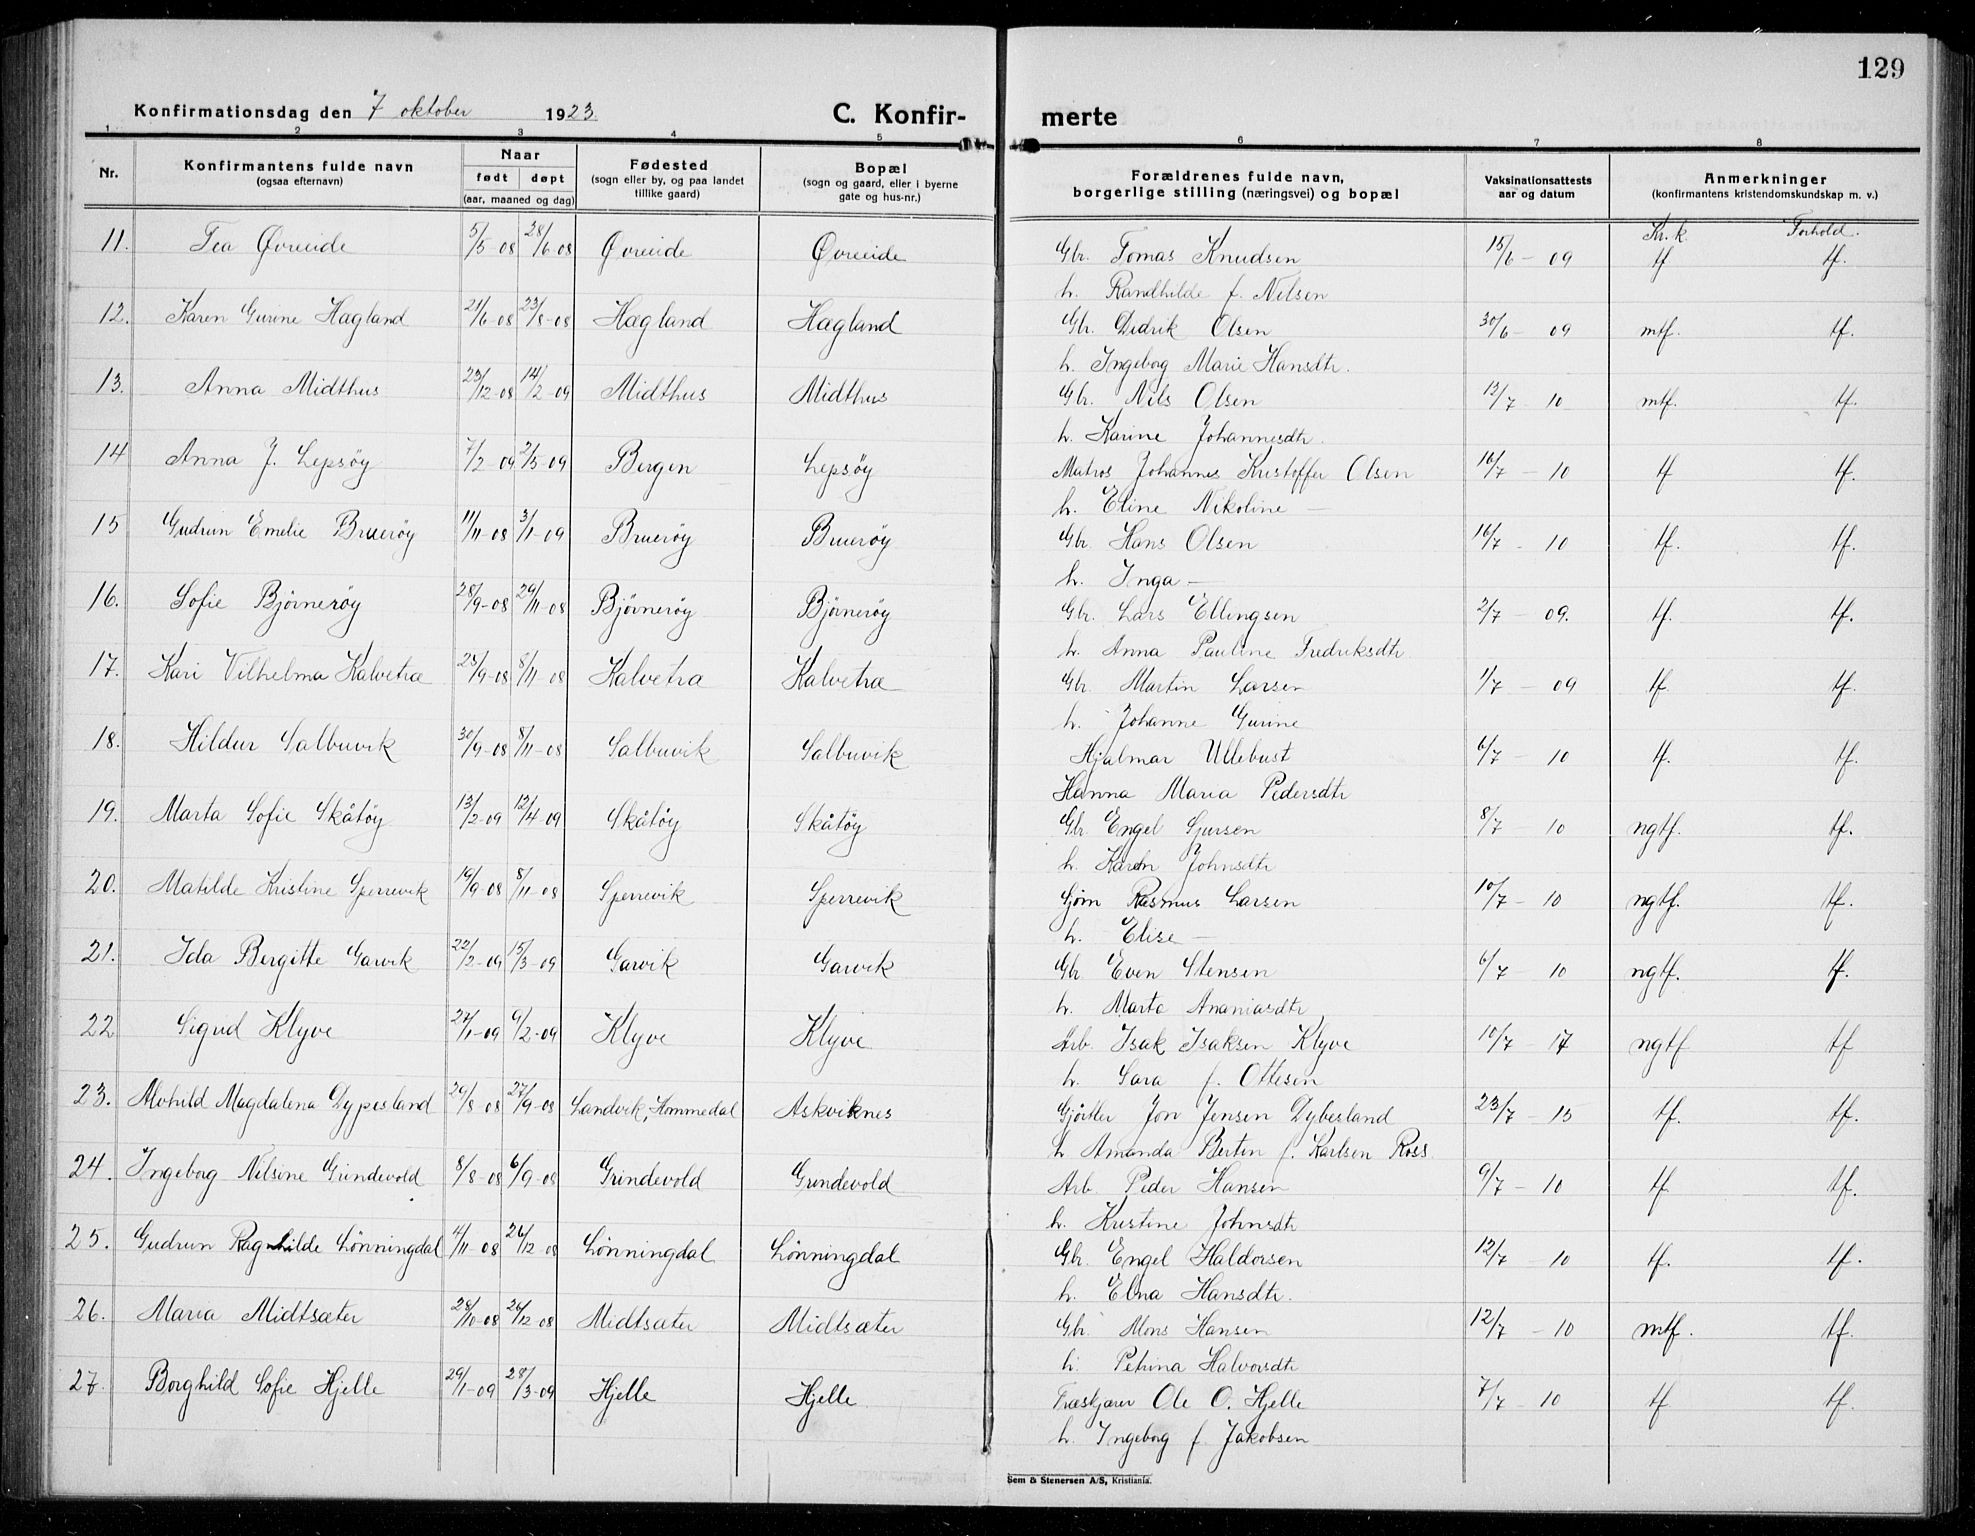 129
Konfirmationsdag den 7 oktober 1923. C. Konfirmerte
1 2 3 4 5 6 7 8
Nr. Konfirmantens fulde navn (ogsaa efternavn) Naar født døpt (aar, maaned og dag) Fødested (sogn eller by, og paa landet tillike gaard) Bopæl (sogn og gaard, eller i byerne gate og hus-nr.) Forældrenes fulde navn, borgerlige stilling (næringsvei) og bopæl Vaksinationsattests aar og datum Anmerkninger (konfirmantens kristendomskundskap m. v.)
Kr.k. Forhold.
11. Tea Øvreeide 5/5-08 28/6-08 Øvreeide Øvreeide Gbr. Tomas Knudsen 15/6-09 tf tf.
h. Randhilde f. Nilsen
12. Karen Gurine Hagland 21/6-08 23/8-08 Hagland Hagland Gbr. Didrik Olsen 30/6-09 mtf. tf.
h. Ingeborg Marie Hansdtr.
13. Anna Midthus 23/12-08 14/2-09 Midthus Midthus Gbr. Nils Olsen 13/7-10 mtf. tf.
h. Karine Johannesdtr.
14 Anna J. Lepsöy 7/2-09 2/5-09 Bergen Lepsöy Matros Johannes Kristoffer Olsen 16/7-10 tf tf.
h. Eline Nikoline —
15 Gudrun Emelie Brueröy 11/11-08 3/1-09 Brueröy Brueröy Gbr. Hans Olsen 16/7-10 tf. tf.
h. Inga —
16. Sofie Björneröy 28/9-08 29/11-08 Björneröy Björneröy Gbr. Lars Ellingsen 2/7-09. tf. tf.
h. Anna Pauline Fredriksdtr.
17. Kari Vilhelma Kalvetræ 25/9-08 8/11-08 Kalvetræ Kalvetræ Gbr. Martin Larsen 1/7-09 tf. tf.
h. Johanne Gurine
18. Hildur Salbuvik 30/9-08 8/11-08 Salbuvik Salbuvik Hjalmar Ullebust 6/7-10 tf. tf.
Hanna Maria Pedersdtr
19. Marta Sofie Skåtöy 13/2-09 12/4-09 Skåtöy Skåtöy Gbr Engel Sjursen 8/7-10 ngtf. tf.
h. Karen Johnsdtr
20. Matilde Kristine Sperrevik 19/9-08 8/11-08 Sperrevik Sperrevik Rasmus Larsen 10/7-10 ngtf. tf.
h. Elise —
21. Ida Bergitte Garvik 22/2-09 15/3-09 Garvik Garvik Gbr Even Stensen 6/7-10 ngtf. tf.
h. Marta Ananiasdtr
22 Sigrid Klyve 27/1-09 9/2-09 Klyve Klyve Arb. Isak Isaksen Klyve 10/7-17 ngtf tf
h. Sara f. Ottesen
23. Alvhild Magdalena Dypesland 29/8 08 27/9-08 Landvik, Hommedal Askviknes Gjörtler Jon Jensen Dybesland 23/7-15 tf. tf.
h Amanda Bertin f. Karlsen Ross.
24. Ingeborg Nilsine Grindevold 8/8-08 6/9-08 Grindevold Grindevold Arb. Peder Hansen 9/7-10 tf. tf.
h. Kristine Johnsdtr
25. Gudrun Ragnhilde Lönningdal 4/11-08 26/12 08 Lönningdal Lönningdal Gbr. Engel Haldorsen 12/7-10 tf. tf.
h. Elna Hansdtr.
26. Maria Midtsæter 28/10-08 26/12 08 Midtsæter Midtsæter Gbr. Mons Hansen 12/7-10 mtf. tf.
h. Petrina Halvorsdtr
27. Borghild Sofie Hjelle 29/1-09 28/3-09 Hjelle Hjelle Træskjærer Ole O. Hjelle 7/7-10 tf tf.
h. Ingeborg f. Jakobsen
Sem & Stenersen A/S, Kristiania.